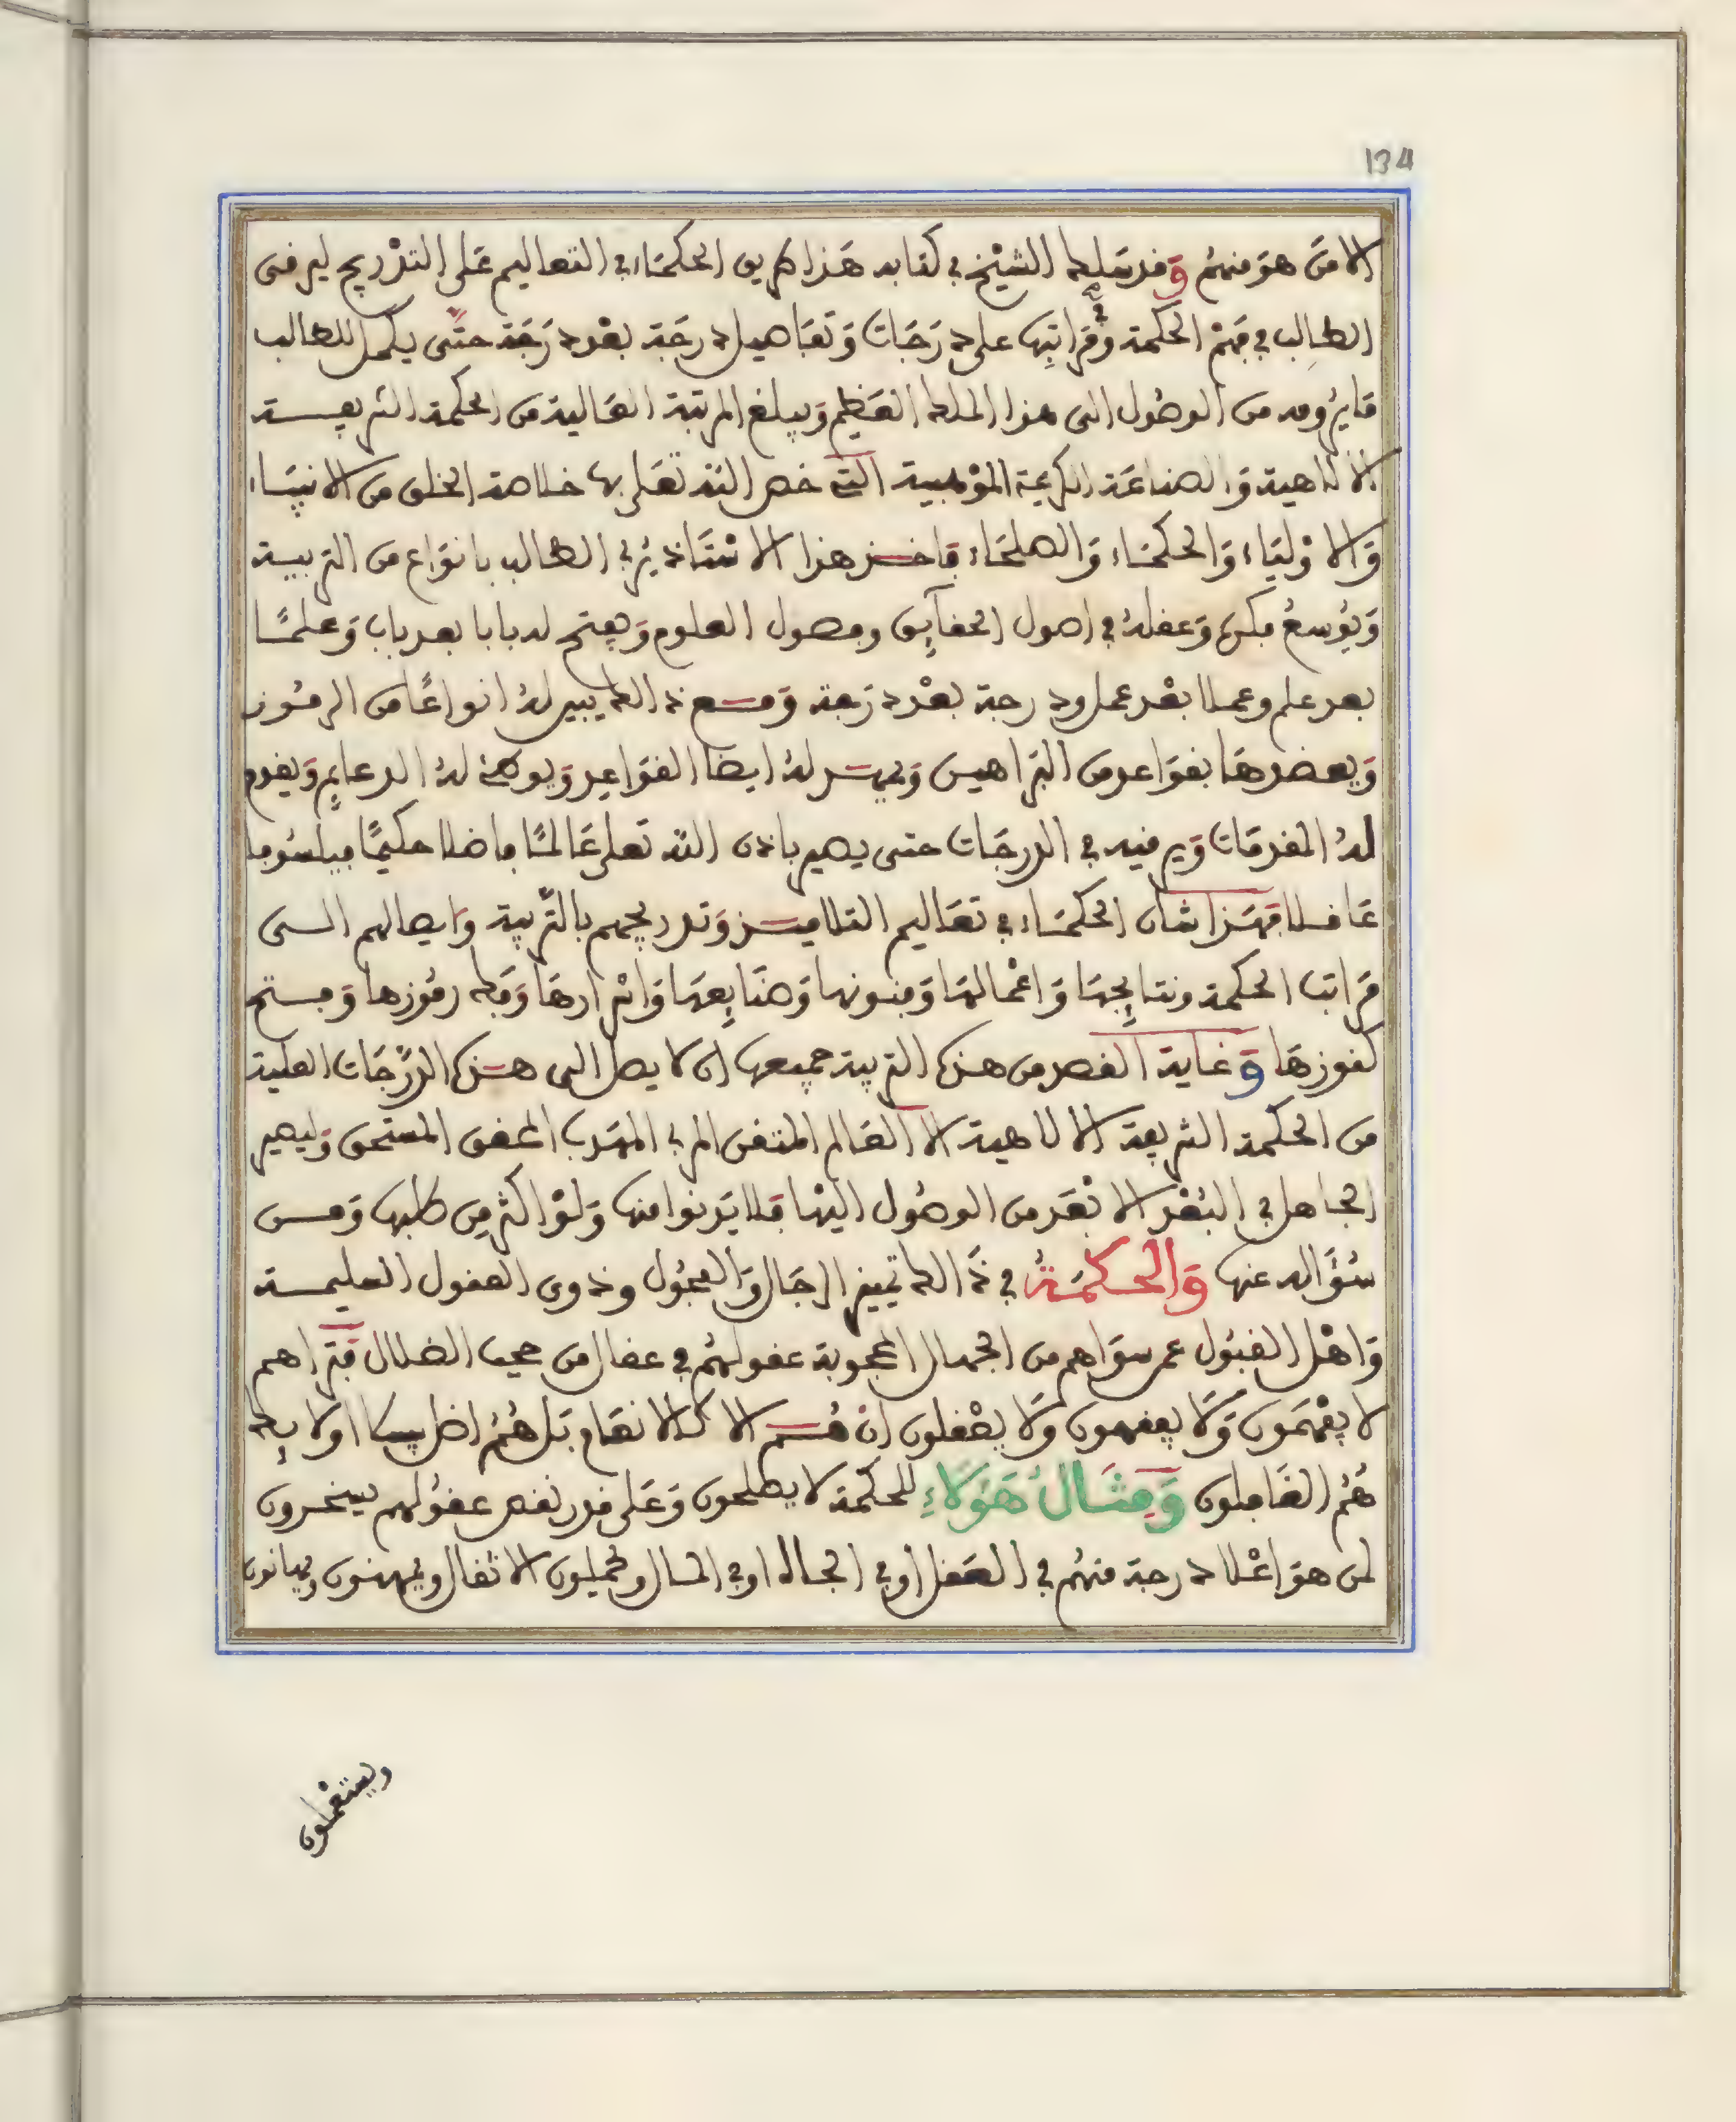 134
الا من هو منهم وقد سلك الشيخ في كتابه هذا طريق الحكماء في التعاليم على التدريج ليرقى
الطالب في فهم الحكمة في مراتبها على درجات وتفاصيل درجة بعد درجة حتى يكمل للطالب
ما يرومه من الوصول الى هذا الملك العظيم ويبلغ المرتبة العالية من الحكمة الشريفة
الالاهية والصناعة الكريمة الموهبية التي خص الله تعلى بها خلاصة الخلق من الانبياء
والاولياء والحكماء والصلحاء فاخذ هذا الاستاذ يربي الطالب بانواع من التربية
ويوسع فكره وعقله في اصول الحقايق وفصول العلوم ويفتح له بابا بعد باب وعلما
بعد علم وعملا بعد عمل ودرجة بعد درجة ومع ذالك يبين له انواعا من الرموز
ويعضدها بقواعد من البراهين ويمهد له ايضا القواعد ويوطئ له الدعايم ويقدم
له المقدمات ويرقيه في الدرجات حتى يصير باذن الله تعلى عالما فاضلا حكيما فيلسوفا
عاقلا فهذا شان الحكماء في تعاليم التلاميذ وتدريجهم بالتربية وايصالهم الى
مراتب الحكمة ونتايجها واعمالها وفنونها وصنايعها واسرارها وفك رموزها وفتح
كنوزها وغاية القصد من هذه التربية جميعها ان لا يصل الى هذه الدرجات العلية
من الحكمة الشريفة الالاهية الا العالم المتقن المربي المهذب المحقق المستحق وليصير
الجاهل في البعد الابعد من الوصول اليها فلا يدنوا منها ولو اكثر من طلبها ومن
سؤاله عنها والحكمة في ذالك تمييز الرجال والفحول وذوي العقول السليمة
واهل القبول عمن سواهم من الجهال المحجوبة عقولهم في عقال من حجب الضلال فتراهم
لا يفهمون ولا يفقهون ولا يعقلون ان هم الا كالانعام بل هم اضل سبيلا اولايك
هم الغافلون ومثال هؤلاء للحكمة لا يصلحون وعلى قدر نقص عقولهم يسخرون
لمن هو اعلا درجة منهم في العقل او في الجاه او في المال ويحملون الاثقال ويمهنون ويهانون
ويستعملون